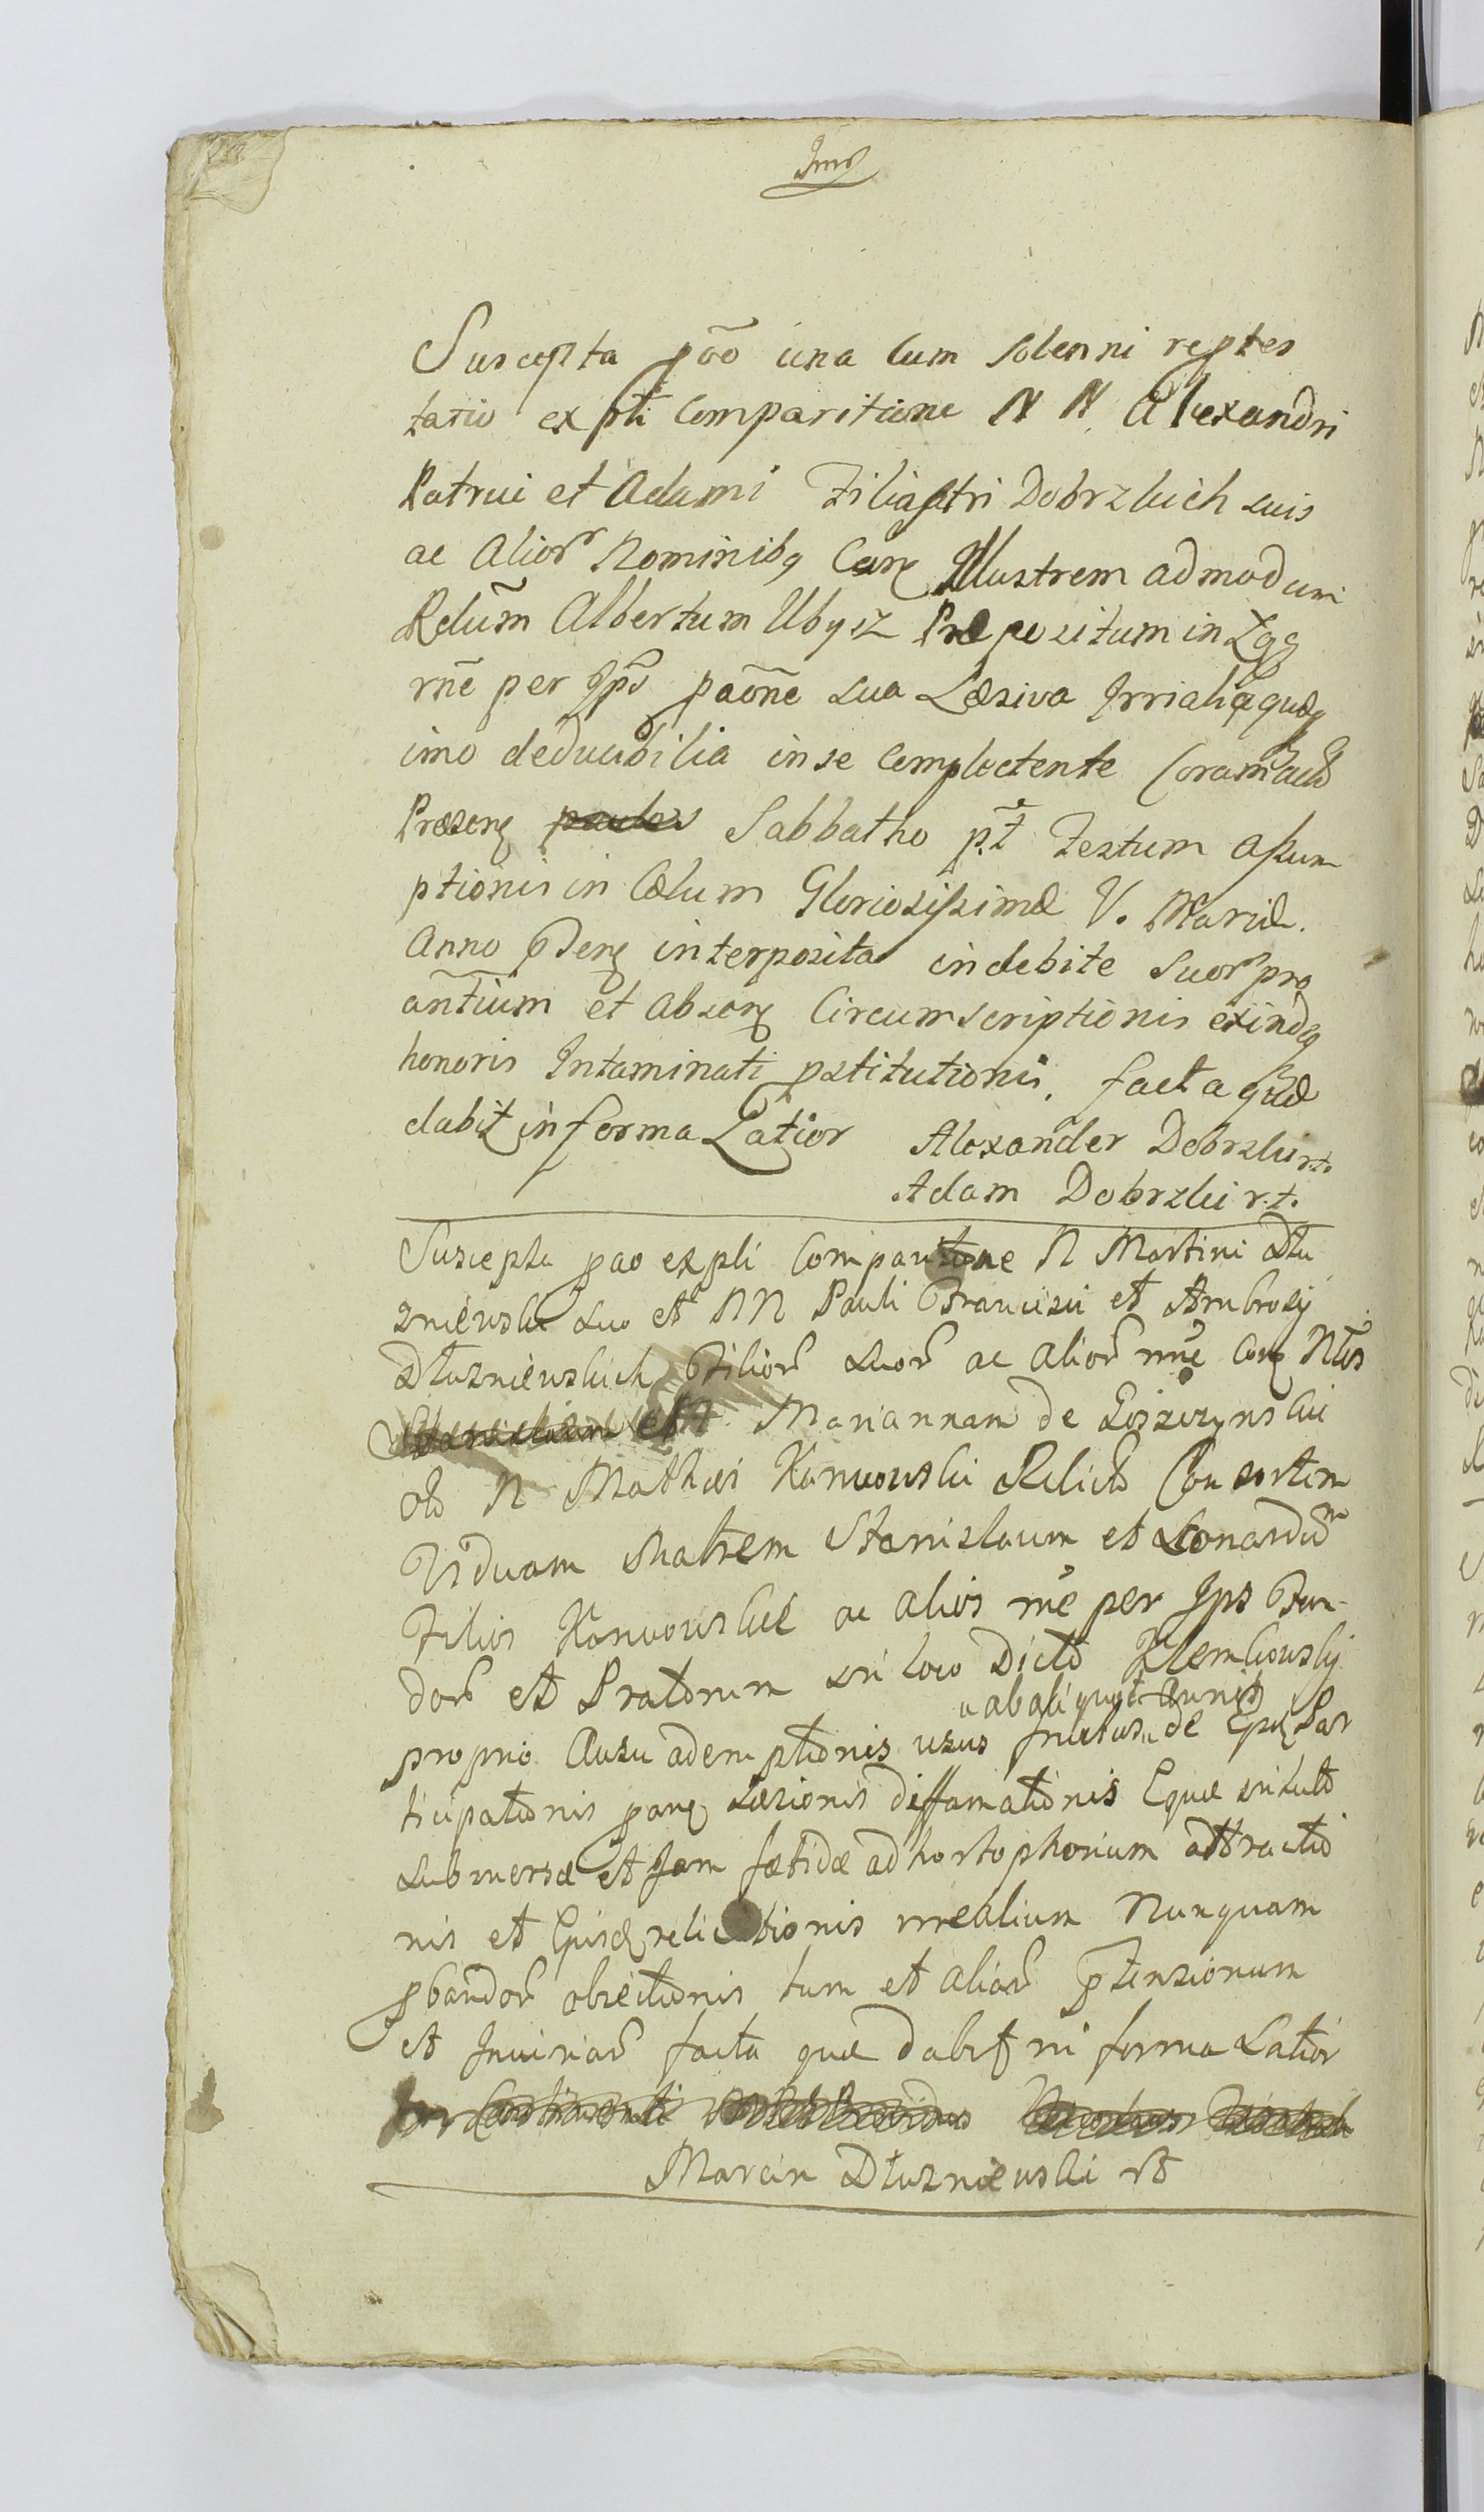 Suscepta pão una cum solenni reptes
tatio ex pti Comparitione N N. Alexandri
Patrui et Adami Filiastri Dobrzkich suis
ac alior Nominibq Conq Illustrem admodum
Rdum Albertum Ubysz Præpositum in
rne per Ips paone sua Læsiva
imo deducibilia in se complectente Coram actis
Præsenq Sabbatho pt Festum assum
ptionis in Cælum Gloriosissimæ V. Mariæ.
Anno interposita indebite suor pro
antium et absonq Circumscriptionis exindeq
honoris Intaminati pstitutionis, facta quæ
dabit in forma Latior Alexander Dobrzki r.t.
Adam Dobrzki r.t.
Suscepta pao ex pti Comparitione N Martini Dłu
zniewski suo et NN Pauli Francisci et Ambrosij
Dłuzniewskich Filior suor ac alior rne Conq Ntos
Mariannam de Goszczynski
olo N Mathæi Karwowski Relicta Consortem
Viduam Matrem Stanislaum et Leonardum
Filios Karwowskie ac alios rne per Ips Fun-
dor et Pratorum in loco Dicto Klemkowskij
ab aliquot Annis
proprio Ausu ademptionis usus fructus de Par
ticipationis panq Læsionis diffamationis Equæ in luto
submersæ et Jam fœtidæ ad hortophorium attractio
nis et relictionis realium Nunquam
pbandor obiectionis tum et alior ptensionum
et Iniuriar facta quæ dabit in forma Latior
Marcin Dłuzniewski rt